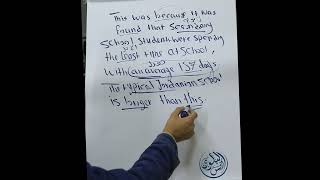 This was because it was
found that secondary
school students were spending
the least time at school,
with an average 139 days.
the typical Jordanian school
is longer than this.